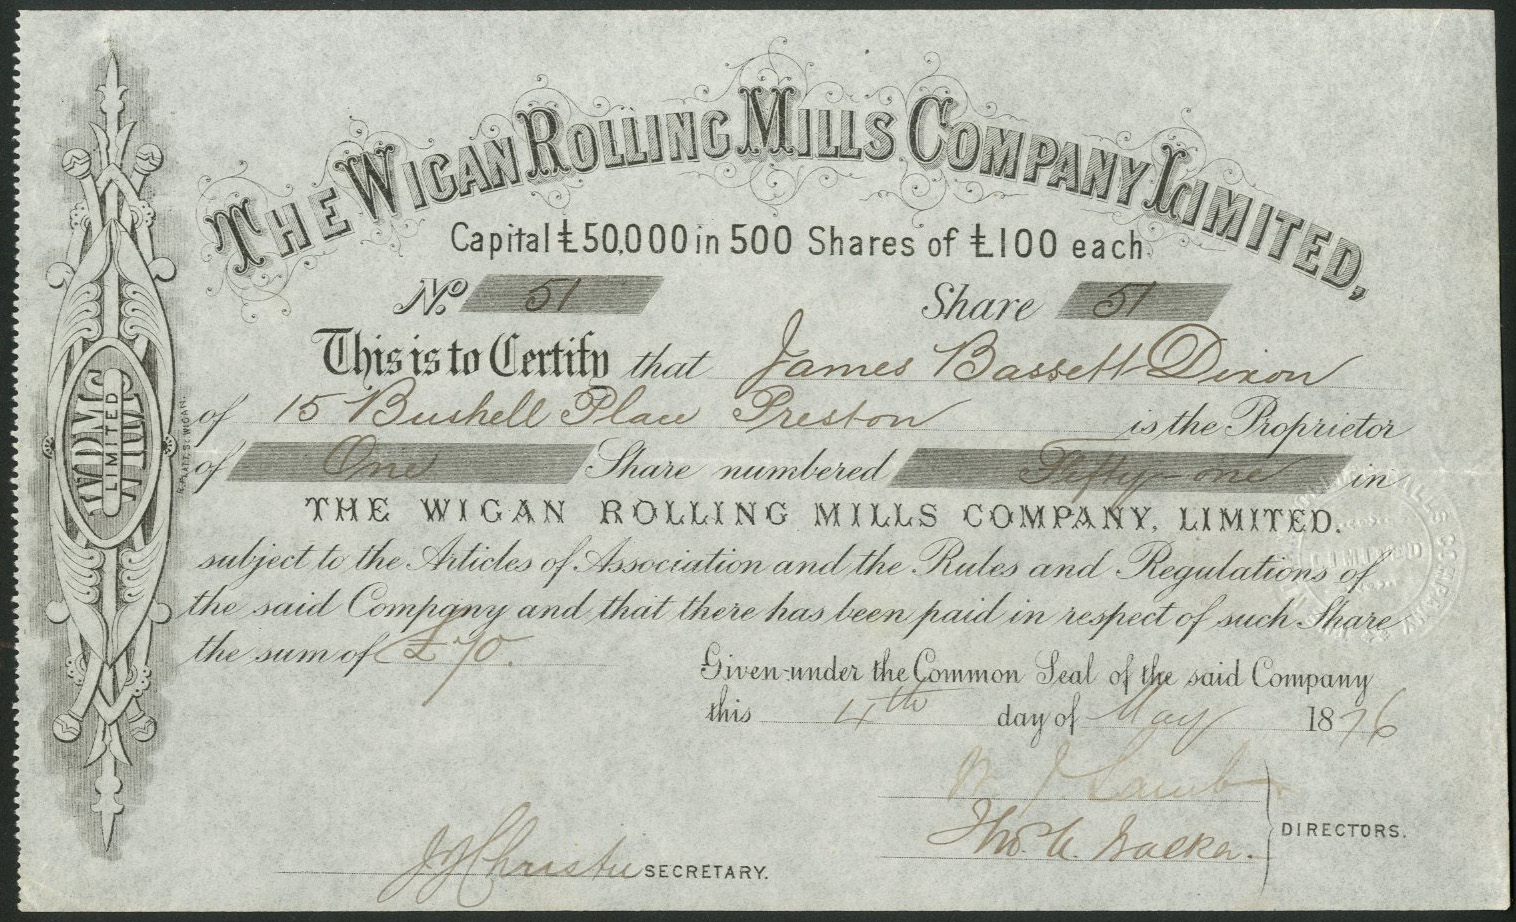 THE WIGAN ROLLING MILLS COMPANY LIMITED,
Capital £50,000 in 500 Shares of £100 each.
No. 51 Share 51
This is to Certify that James Bassett Dixon
of 15 Bushell Place Preston is the Proprietor
of One Share numbered Fifty-one in
THE WIGAN ROLLING MILLS COMPANY, LIMITED.
subject to the Articles of Association and the Rules and Regulations of
the said Company and that there has been paid in respect of such Share
the sum of £70.
Given under the Common Seal of the said Company
this 4th day of May 1876
W J Lamb
Thos. Walker.
DIRECTORS.
J J Christie SECRETARY.
LIMITED
R. PLATT, Sc. WIGAN.
LIMITED